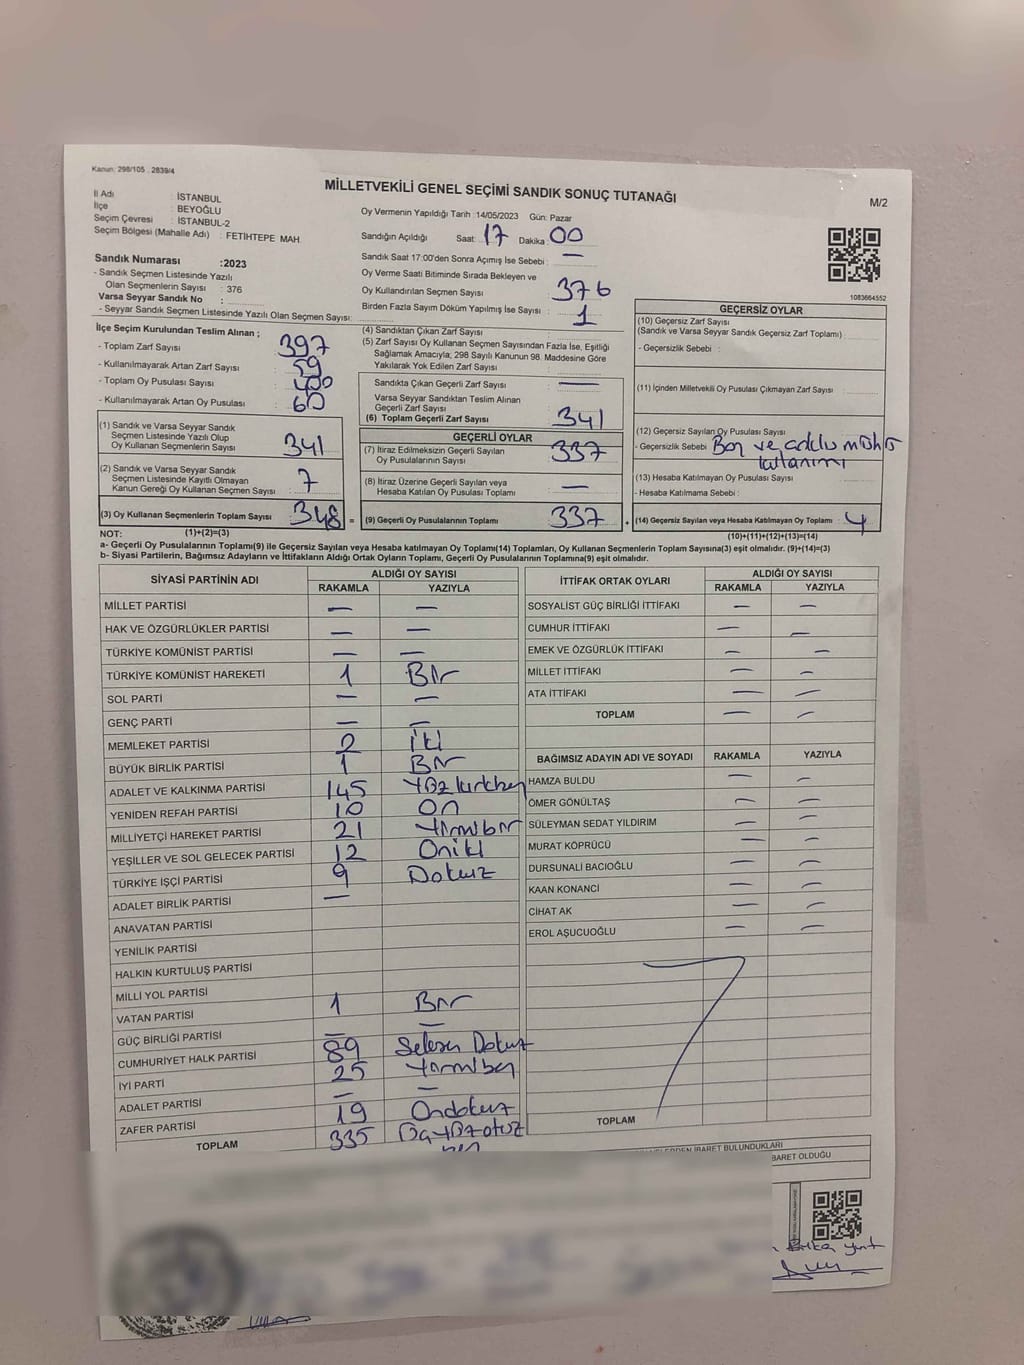 Kanun: 298/105 . 2839/4
MİLLETVEKİLİ GENEL SEÇİMİ SANDIK SONUÇ TUTANAĞI
M/2
İl Adı : İSTANBUL
İlçe : BEYOĞLU
Seçim Çevresi : İSTANBUL-2
Seçim Bölgesi (Mahalle Adı) : FETİHTEPE MAH.
Sandık Numarası :2023
- Sandık Seçmen Listesinde Yazılı
Olan Seçmenlerin Sayısı : 376
Varsa Seyyar Sandık No :
- Seyyar Sandık Seçmen Listesinde Yazılı Olan Seçmen Sayısı:
Oy Vermenin Yapıldığı Tarih :14/05/2023 Gün: Pazar
Sandığın Açıldığı Saat: 17 Dakika: 00
Sandık Saat 17:00'den Sonra Açımış İse Sebebi : —
Oy Verme Saati Bitiminde Sırada Bekleyen ve
Oy Kullandırılan Seçmen Sayısı : 376
Birden Fazla Sayım Döküm Yapılmış İse Sayısı : 1
1083664552
İlçe Seçim Kurulundan Teslim Alınan ;
- Toplam Zarf Sayısı : 397
- Kullanılmayarak Artan Zarf Sayısı : 59
- Toplam Oy Pusulası Sayısı : 400
- Kullanılmayarak Artan Oy Pusulası : 60
(1) Sandık ve Varsa Seyyar Sandık
Seçmen Listesinde Yazılı Olup
Oy Kullanan Seçmenlerin Sayısı : 341
(2) Sandık ve Varsa Seyyar Sandık
Seçmen Listesinde Kayıtlı Olmayan
Kanun Gereği Oy Kullanan Seçmen Sayısı : 7
(3) Oy Kullanan Seçmenlerin Toplam Sayısı : 348 =
(1)+(2)=(3)
(4) Sandıktan Çıkan Zarf Sayısı :
(5) Zarf Sayısı Oy Kullanan Seçmen Sayısından Fazla İse, Eşitliği
Sağlamak Amacıyla, 298 Sayılı Kanunun 98. Maddesine Göre
Yakılarak Yok Edilen Zarf Sayısı :
Sandıkta Çıkan Geçerli Zarf Sayısı : —
Varsa Seyyar Sandıktan Teslim Alınan
Geçerli Zarf Sayısı :
(6) Toplam Geçerli Zarf Sayısı : 341
GEÇERLİ OYLAR
(7) İtiraz Edilmeksizin Geçerli Sayılan
Oy Pusulalarının Sayısı : 337
(8) İtiraz Üzerine Geçerli Sayılan veya
Hesaba Katılan Oy Pusulası Toplamı : —
(9) Geçerli Oy Pusulalarının Toplamı : 337 +
GEÇERSİZ OYLAR
(10) Geçersiz Zarf Sayısı
(Sandık ve Varsa Seyyar Sandık Geçersiz Zarf Toplamı) :
- Geçersizlik Sebebi :
(11) İçinden Milletvekil Oy Pusulası Çıkmayan Zarf Sayısı :
(12) Geçersiz Sayılan Oy Pusulası Sayısı :
- Geçersizlik Sebebi : Boş ve
(13) Hesaba Katılmayan Oy Pusulası Sayısı :
- Hesaba Katılmama Sebebi :
(14) Geçersiz Sayılan veya Hesaba Katılmayan Oy Toplamı : 4
(10)+(11)+(12)+(13)=(14)
NOT:
a- Geçerli Oy Pusulalarının Toplamı(9) ile Geçersiz Sayılan veya Hesaba katılmayan Oy Toplamı(14) Toplamları, Oy Kullanan Seçmenlerin Toplam Sayısına(3) eşit olmalıdır. (9)+(14)=(3)
b- Siyasi Partilerin, Bağımsız Adayların ve İttifakların Aldığı Ortak Oyların Toplamı, Geçerli Oy Pusulalarının Toplamına(9) eşit olmalıdır.
SİYASİ PARTİNİN ADI ALDIĞI OY SAYISI
RAKAMLA YAZIYLA
MİLLET PARTİSİ — —
HAK VE ÖZGÜRLÜKLER PARTİSİ — —
TÜRKİYE KOMÜNİST PARTİSİ — —
TÜRKİYE KOMÜNİST HAREKETİ 1 Bir
SOL PARTİ — —
GENÇ PARTİ — —
MEMLEKET PARTİSİ 2 iki
BÜYÜK BİRLİK PARTİSİ 1 Bir
ADALET VE KALKINMA PARTİSİ 145 Yüzkırkbeş
YENİDEN REFAH PARTİSİ 10 On
MİLLİYETÇİ HAREKET PARTİSİ 21 Yirmibir
YEŞİLLER VE SOL GELECEK PARTİSİ 12 Oniki
TÜRKİYE İŞÇİ PARTİSİ 9 Dokuz
ADALET BİRLİK PARTİSİ —
ANAVATAN PARTİSİ
YENİLİK PARTİSİ
HALKIN KURTULUŞ PARTİSİ
MİLLİ YOL PARTİSİ
VATAN PARTİSİ 1 Bir
GÜÇ BİRLİĞİ PARTİSİ — —
CUMHURİYET HALK PARTİSİ 89 Seksen Dokuz
İYİ PARTİ 25 Yirmibeş
ADALET PARTİSİ — —
ZAFER PARTİSİ 19 Ondokuz
TOPLAM 335
İTTİFAK ORTAK OYLARI ALDIĞI OY SAYISI
RAKAMLA YAZIYLA
SOSYALİST GÜÇ BİRLİĞİ İTTİFAKI — —
CUMHUR İTTİFAKI — —
EMEK VE ÖZGÜRLÜK İTTİFAKI — —
MİLLET İTTİFAKI — —
ATA İTTİFAKI — —
TOPLAM — —
BAĞIMSIZ ADAYIN ADI VE SOYADI RAKAMLA YAZIYLA
HAMZA BULDU — —
ÖMER GÖNÜLTAŞ — —
SÜLEYMAN SEDAT YILDIRIM — —
MURAT KÖPRÜCÜ — —
DURSUNALİ BACIOĞLU — —
KAAN KONANCİ — —
CİHAT AK — —
EROL AŞUCUOĞLU — —
TOPLAM
İBARET BULUNDUKLARI
BARET OLDUĞU